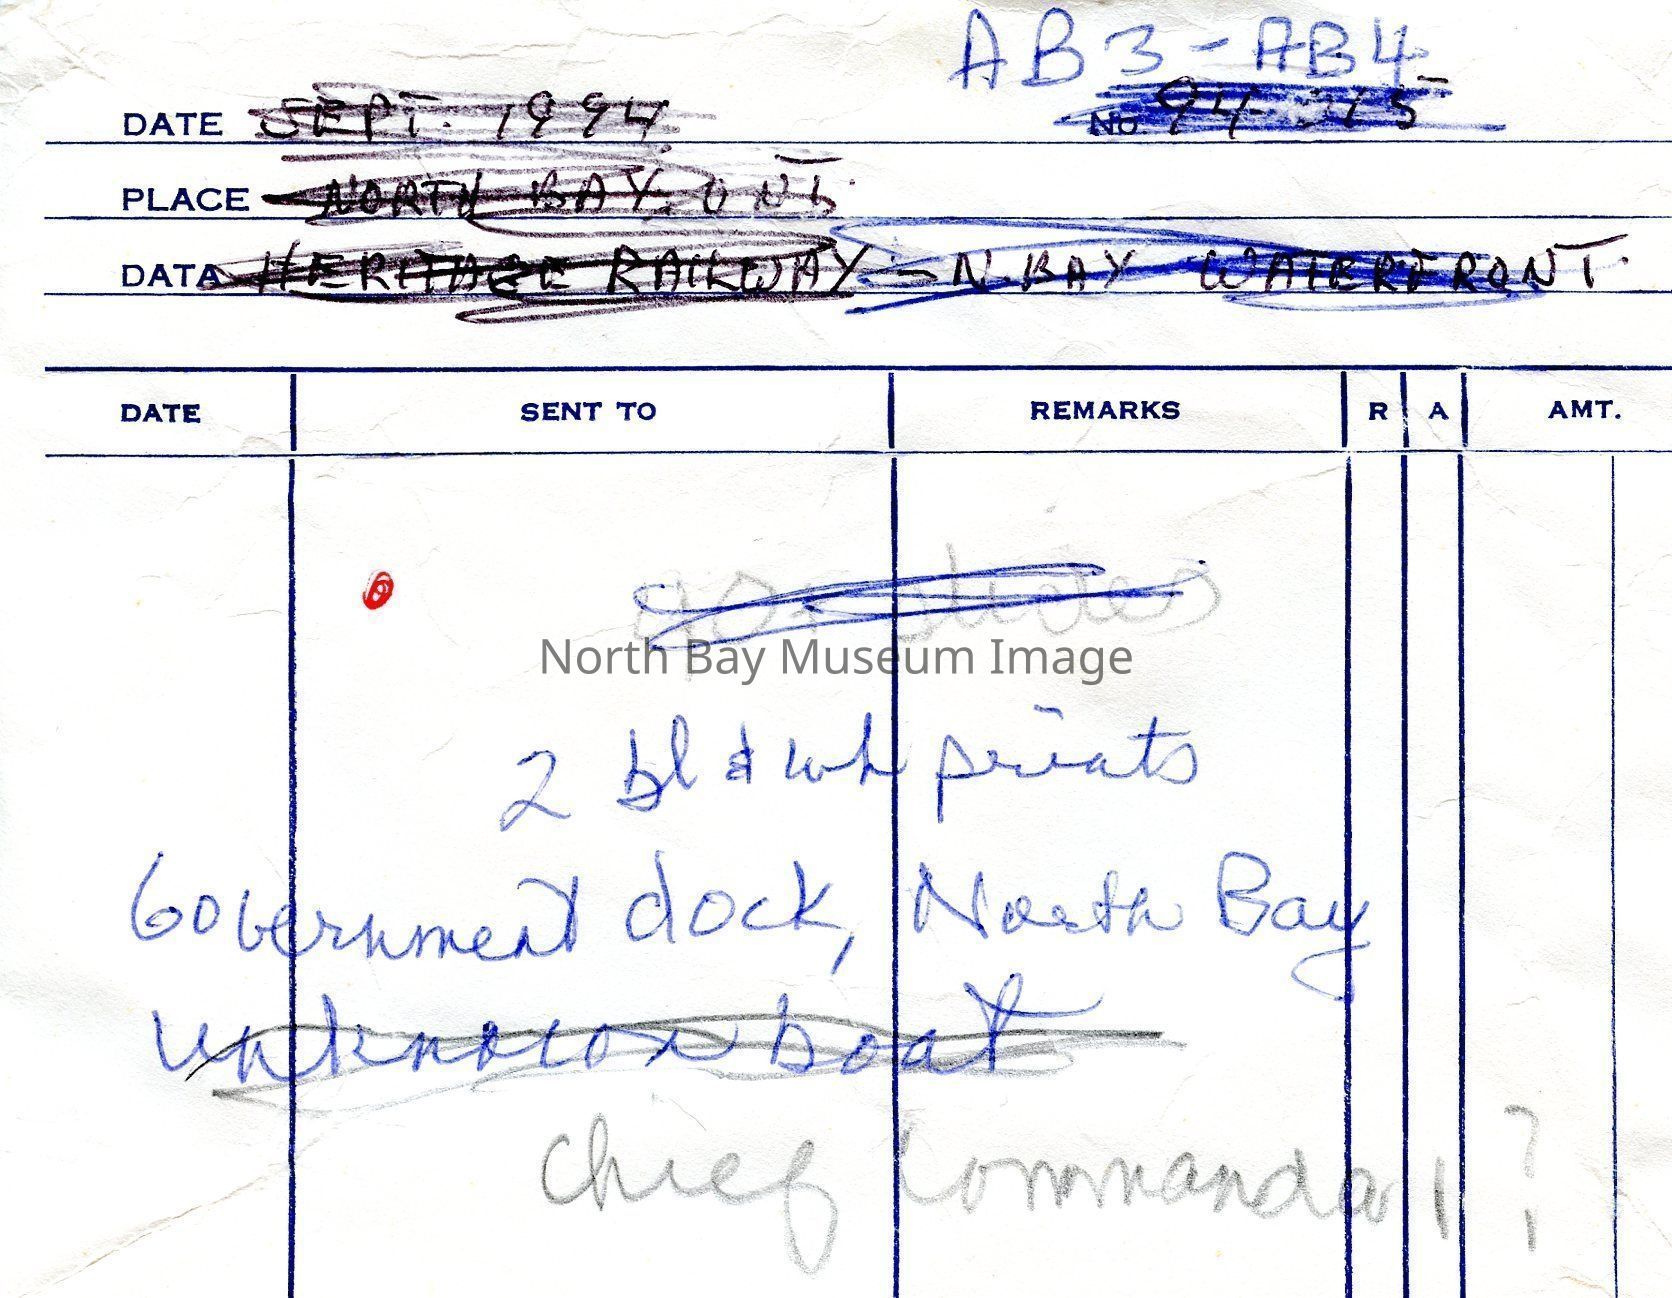 AB3-AB4
DATE SEPT. 1994 No. 94-315
PLACE NORTH BAY. ONT.
DATA HERITAGE RAILWAY - N. BAY WATERFRONT.
DATE SENT TO REMARKS R A AMT.
slides
North Bay Museum Image
2 bl & wh prints
Government dock, North Bay
unknown boat
Chief Commanda 1 ?